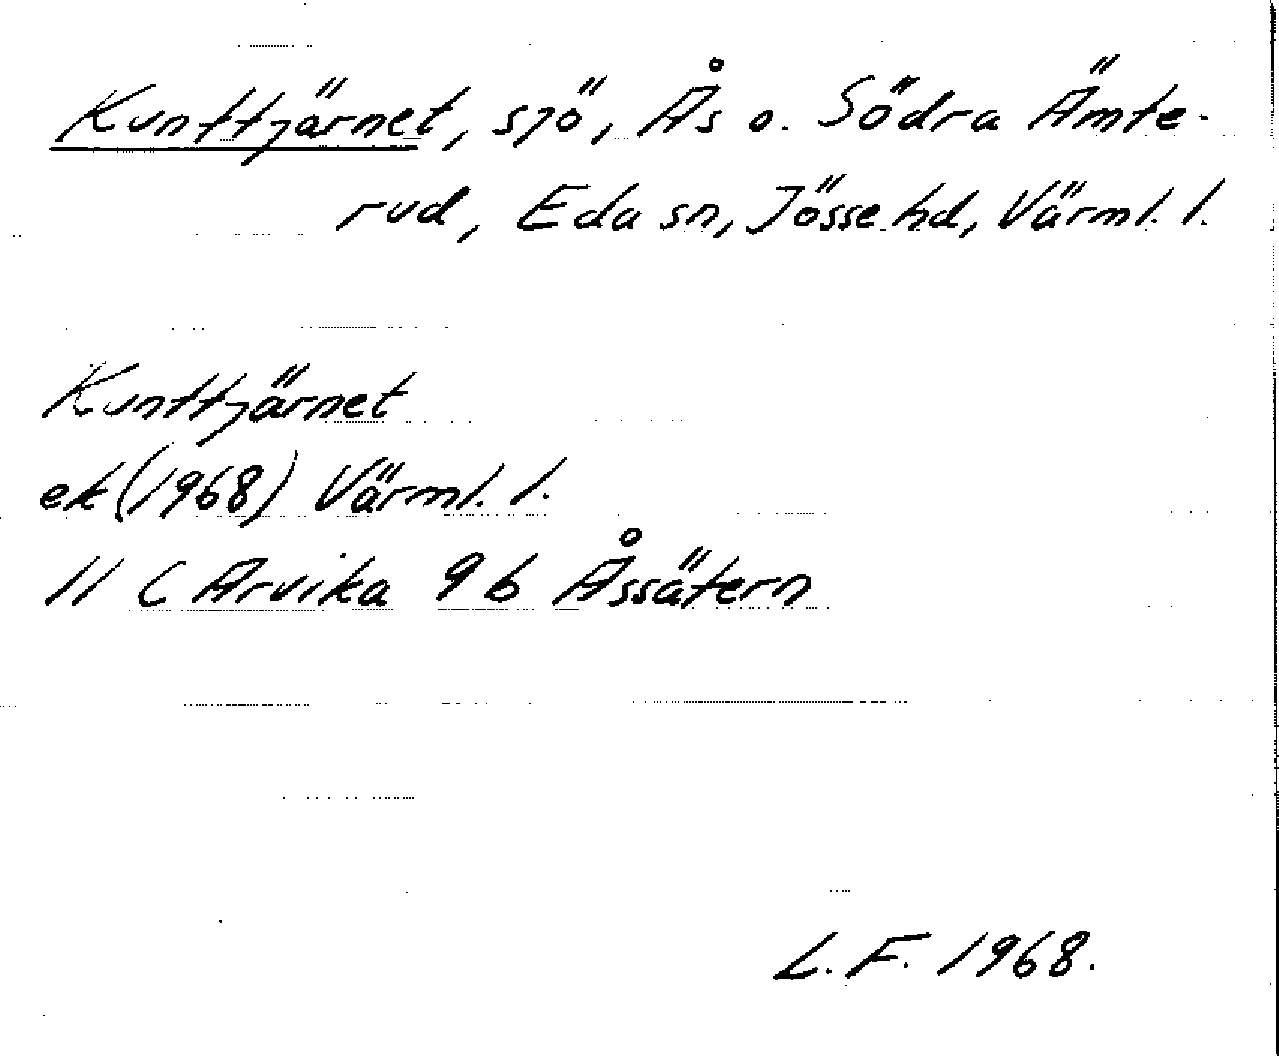 Kunttjärnet, sjö, Ås o. Södra Ämte-
rud, Eda sn, Jösse hd, Värml. l.
Kunttjärnet
ek (1968) Värml. l.
11 C Arvika 9 b Åssätern
L. F. 1968.